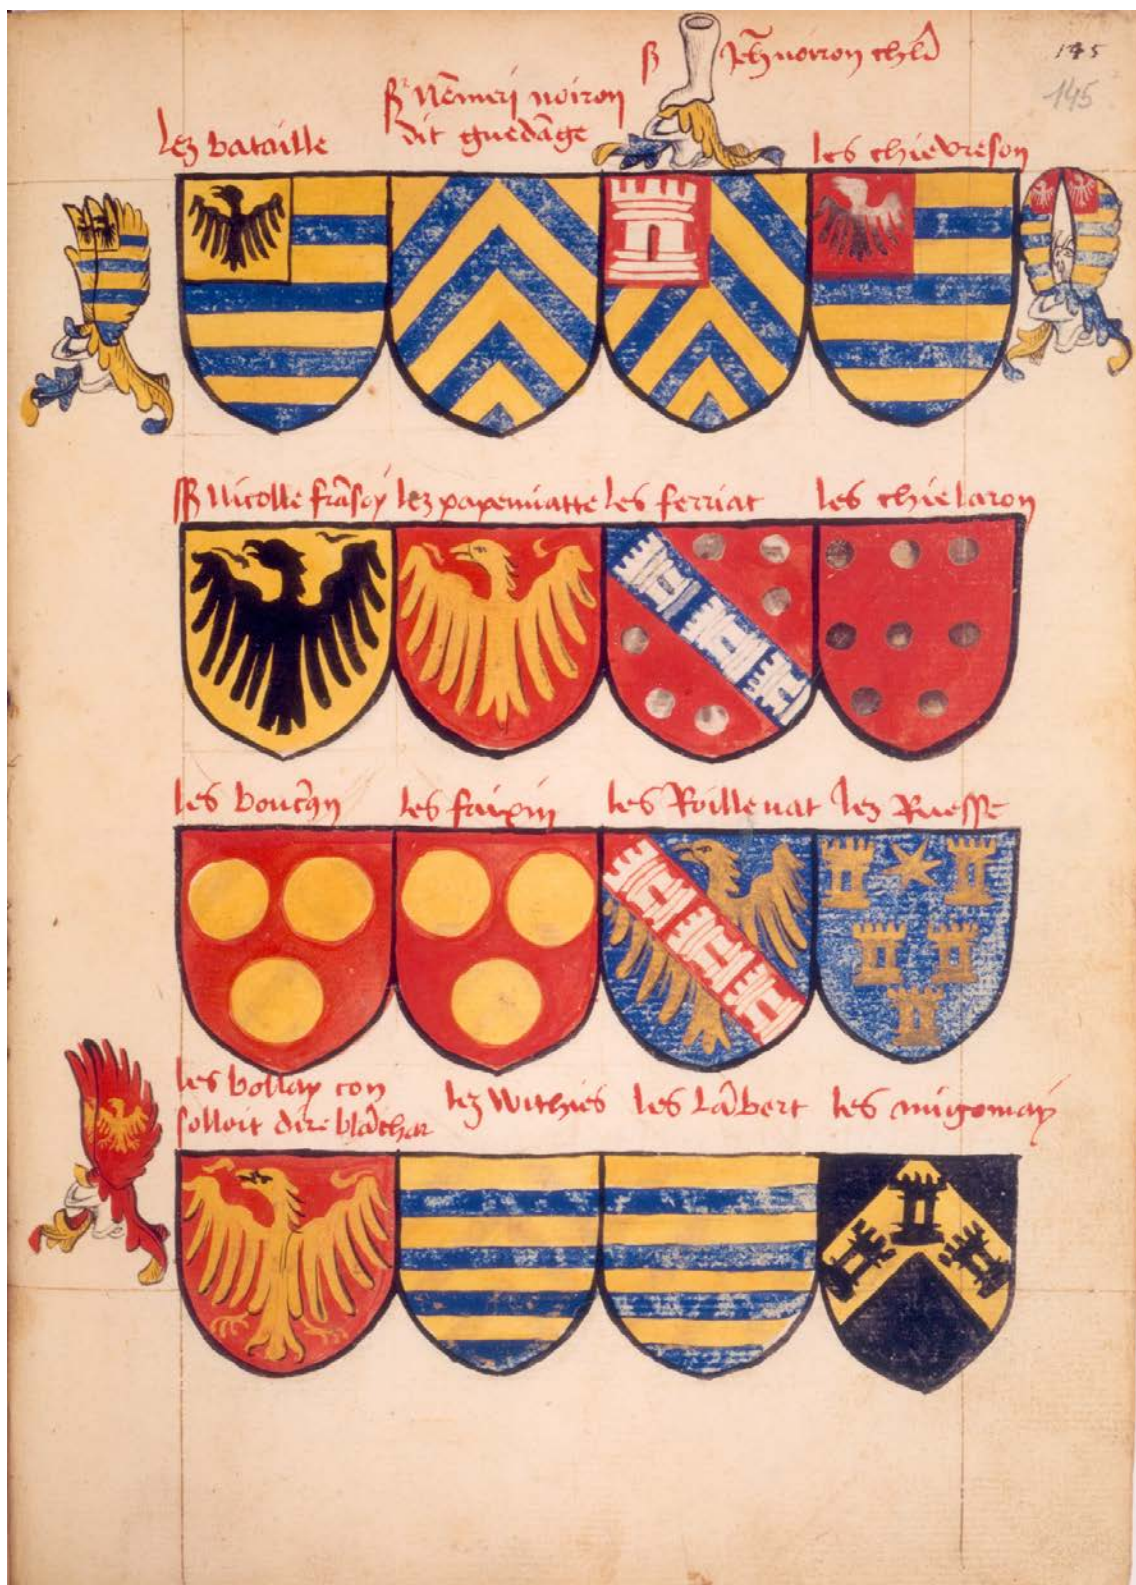 145
145
sr Jeh̃ noiron chlr̃
sr Nẽmerj noiron
dit guedãge
lez bataille
les chievreson
sr Nicolle frãsoy
lez papemiatte
les ferriat
les chielaron
les
les faixin
les Roillenat
lez Ruesse
les bollay con
solloit dire blãchar
lez Withiés
les lãbert
les migomay